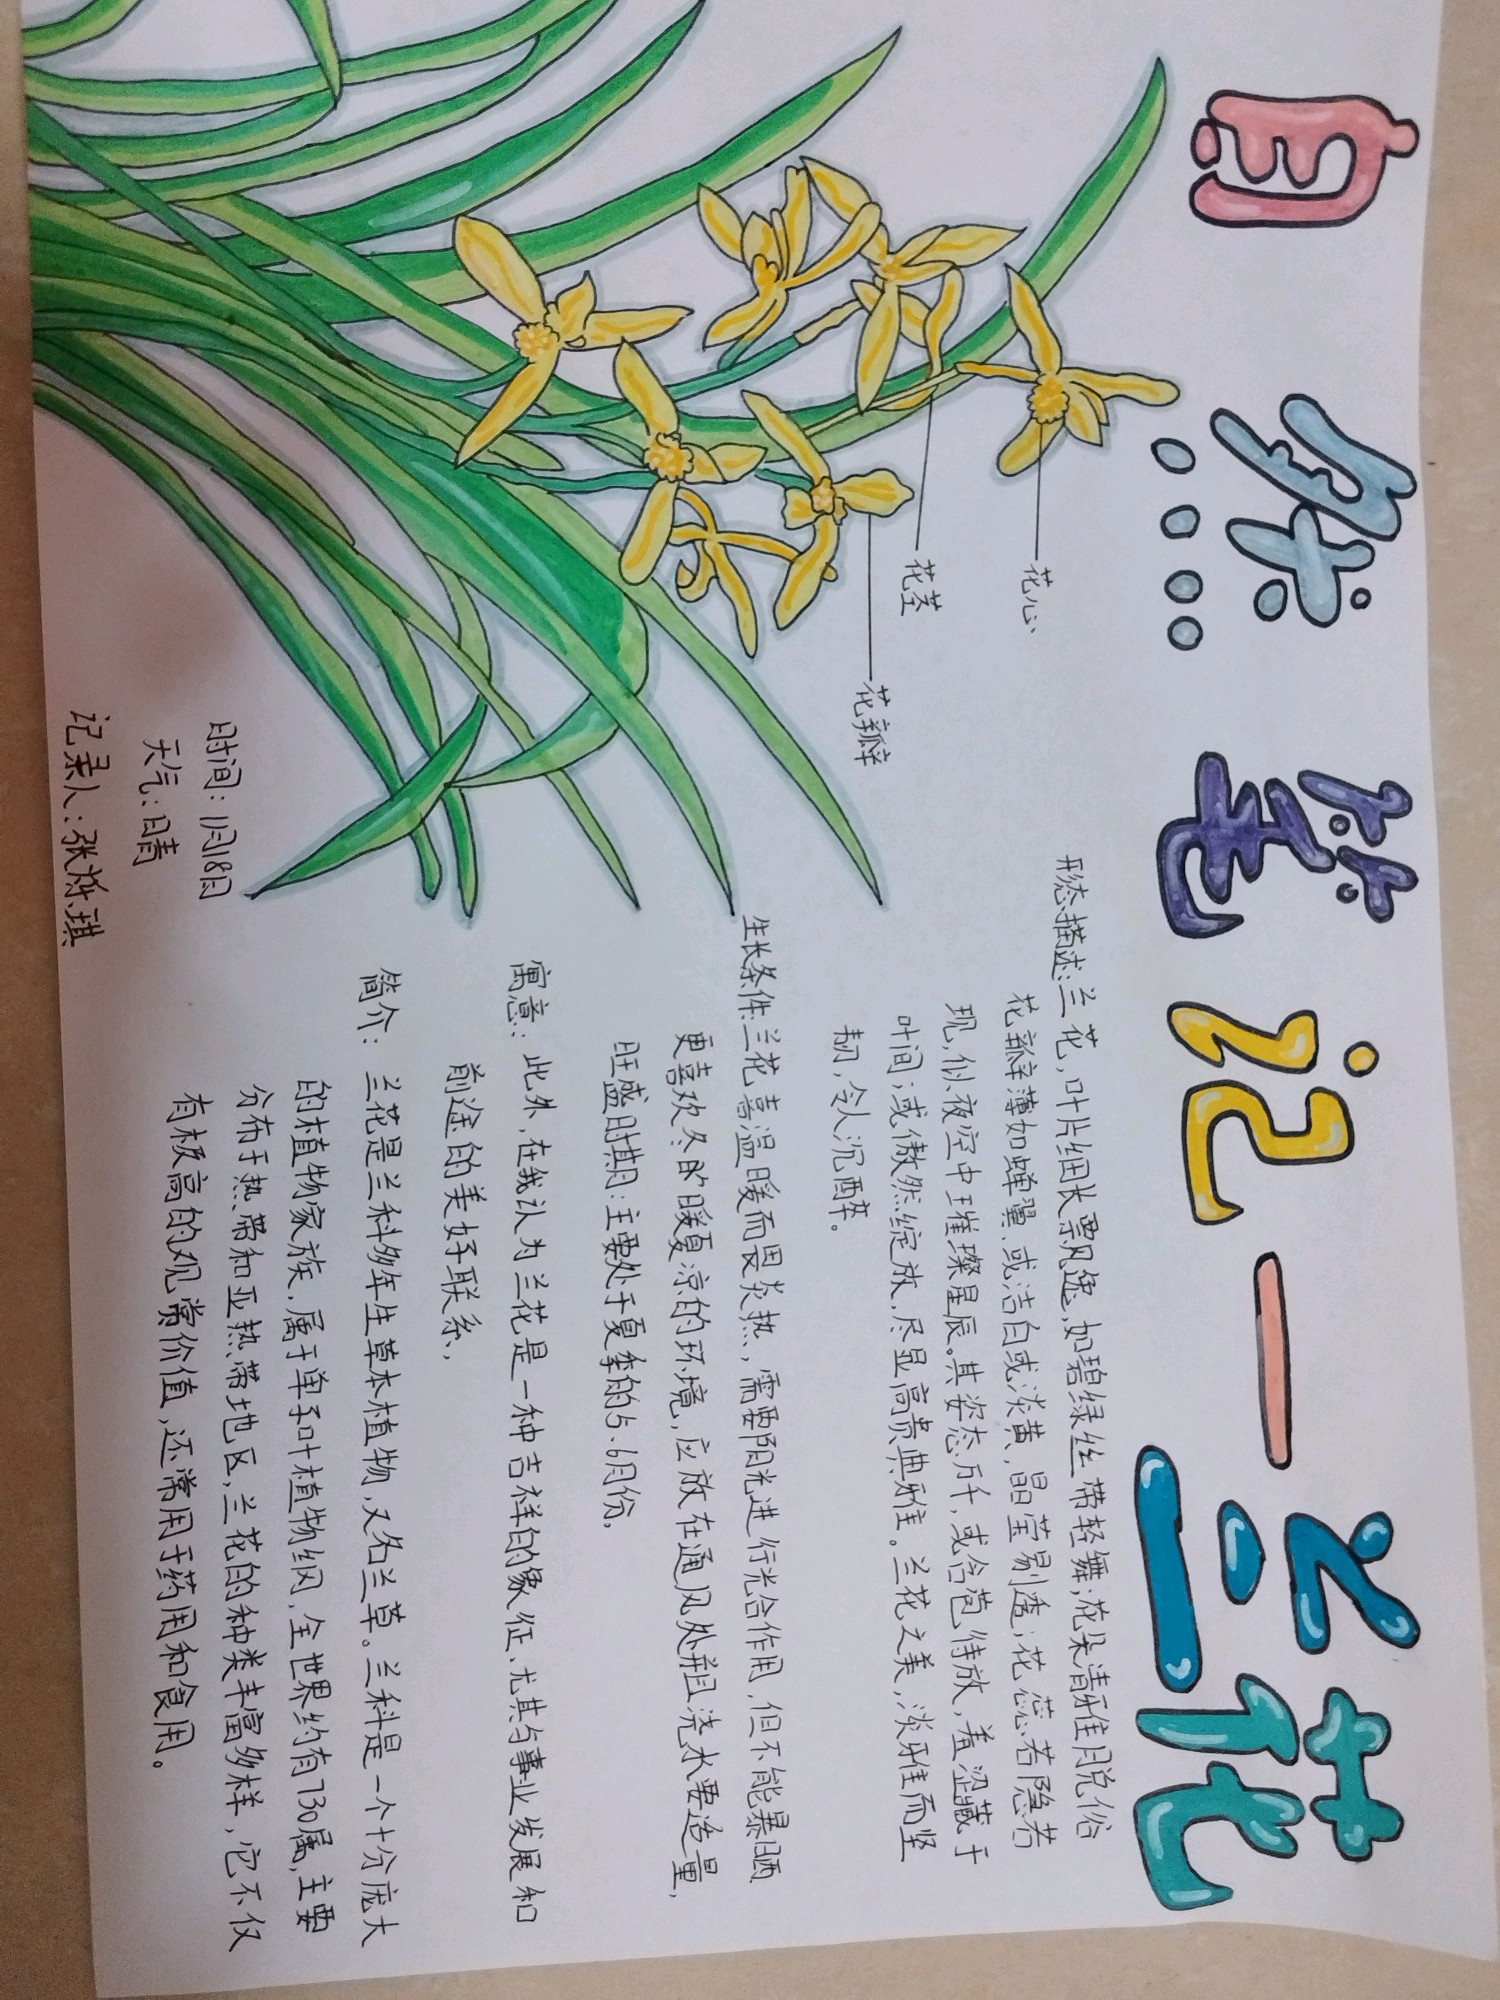 自然笔记—兰花
花心
花茎
花瓣
形态描述:兰花,叶片细长飘逸,如碧绿丝带轻舞;花朵清雅脱俗
花瓣薄如蝉翼,或洁白或淡黄,晶莹剔透;花蕊若隐若
现,似夜空中璀璨星辰。其姿态万千,或含苞待放,羞涩藏于
叶间;或傲然绽放,尽显高贵典雅。兰花之美,淡雅而坚
韧,令人沉醉。
生长条件:兰花喜温暖而畏炎热,需要阳光进行光合作用,但不能暴晒
更喜欢冬暖夏凉的环境,应放在通风处,浇水要适量,
旺盛时期:主要处于夏季的5、6月份。
寓意:此外,在我认为兰花是一种吉祥的象征、尤其与事业发展和
前途的美好联系,
简介:兰花是兰科多年生草本植物,又名兰草。兰科是一个十分庞大
的植物家族,属于单子叶植物纲,全世界约有730属,主要
分布于热带和亚热带地区,兰花的种类丰富多样,它不仅
有极高的观赏价值,还常用于药用和食用。
时间:11月18日
天气:晴
记录人:张烁琪